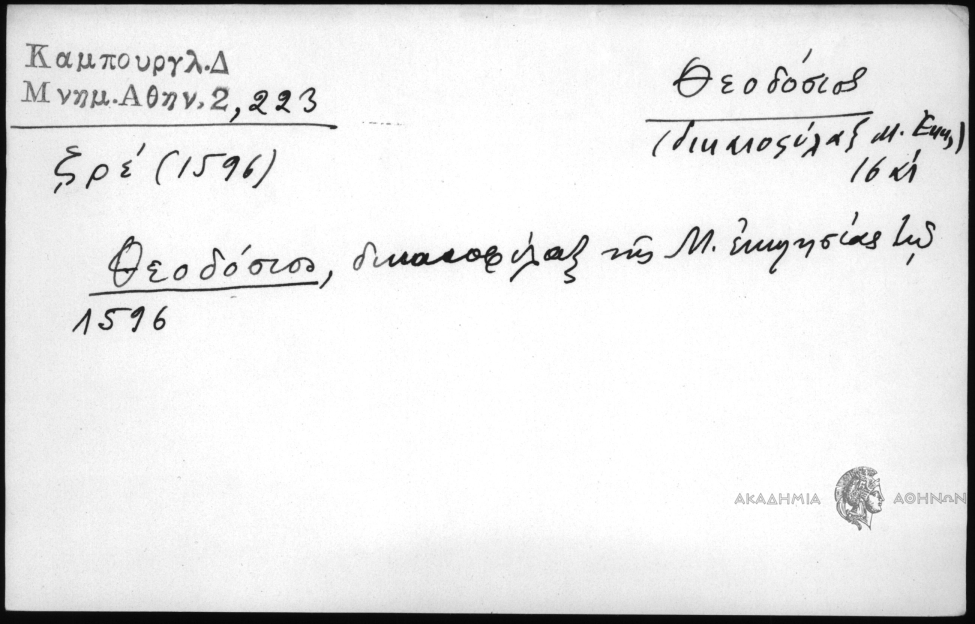 Καμπουργλ.Δ
Μνημ.Αθην.2,223
Θεοδόσιος
(δικαιοφύλαξ Μ. Εκκλ)
16 αἰ
ζρέ (1596)
Θεοδόσιος, δικαιοφύλαξ τῆς Μ. ἐκκλησίας
1596
ΑΚΑΔΗΜΙΑ ΑΘΗΝΩΝ